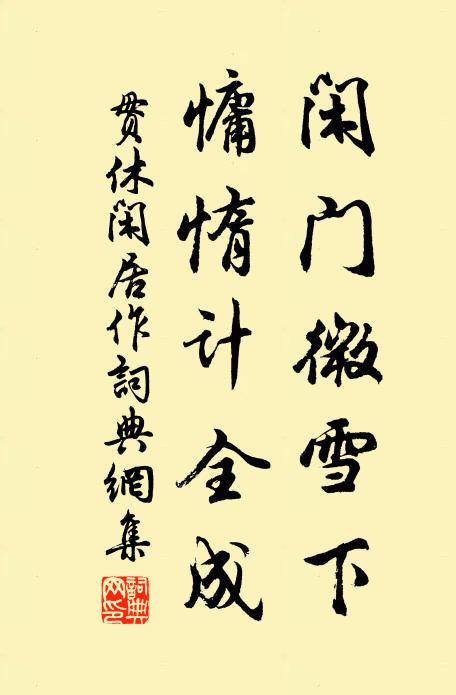 闲门微雪下
慵惰计全成
贯休闲居作词典網集
詞典网印